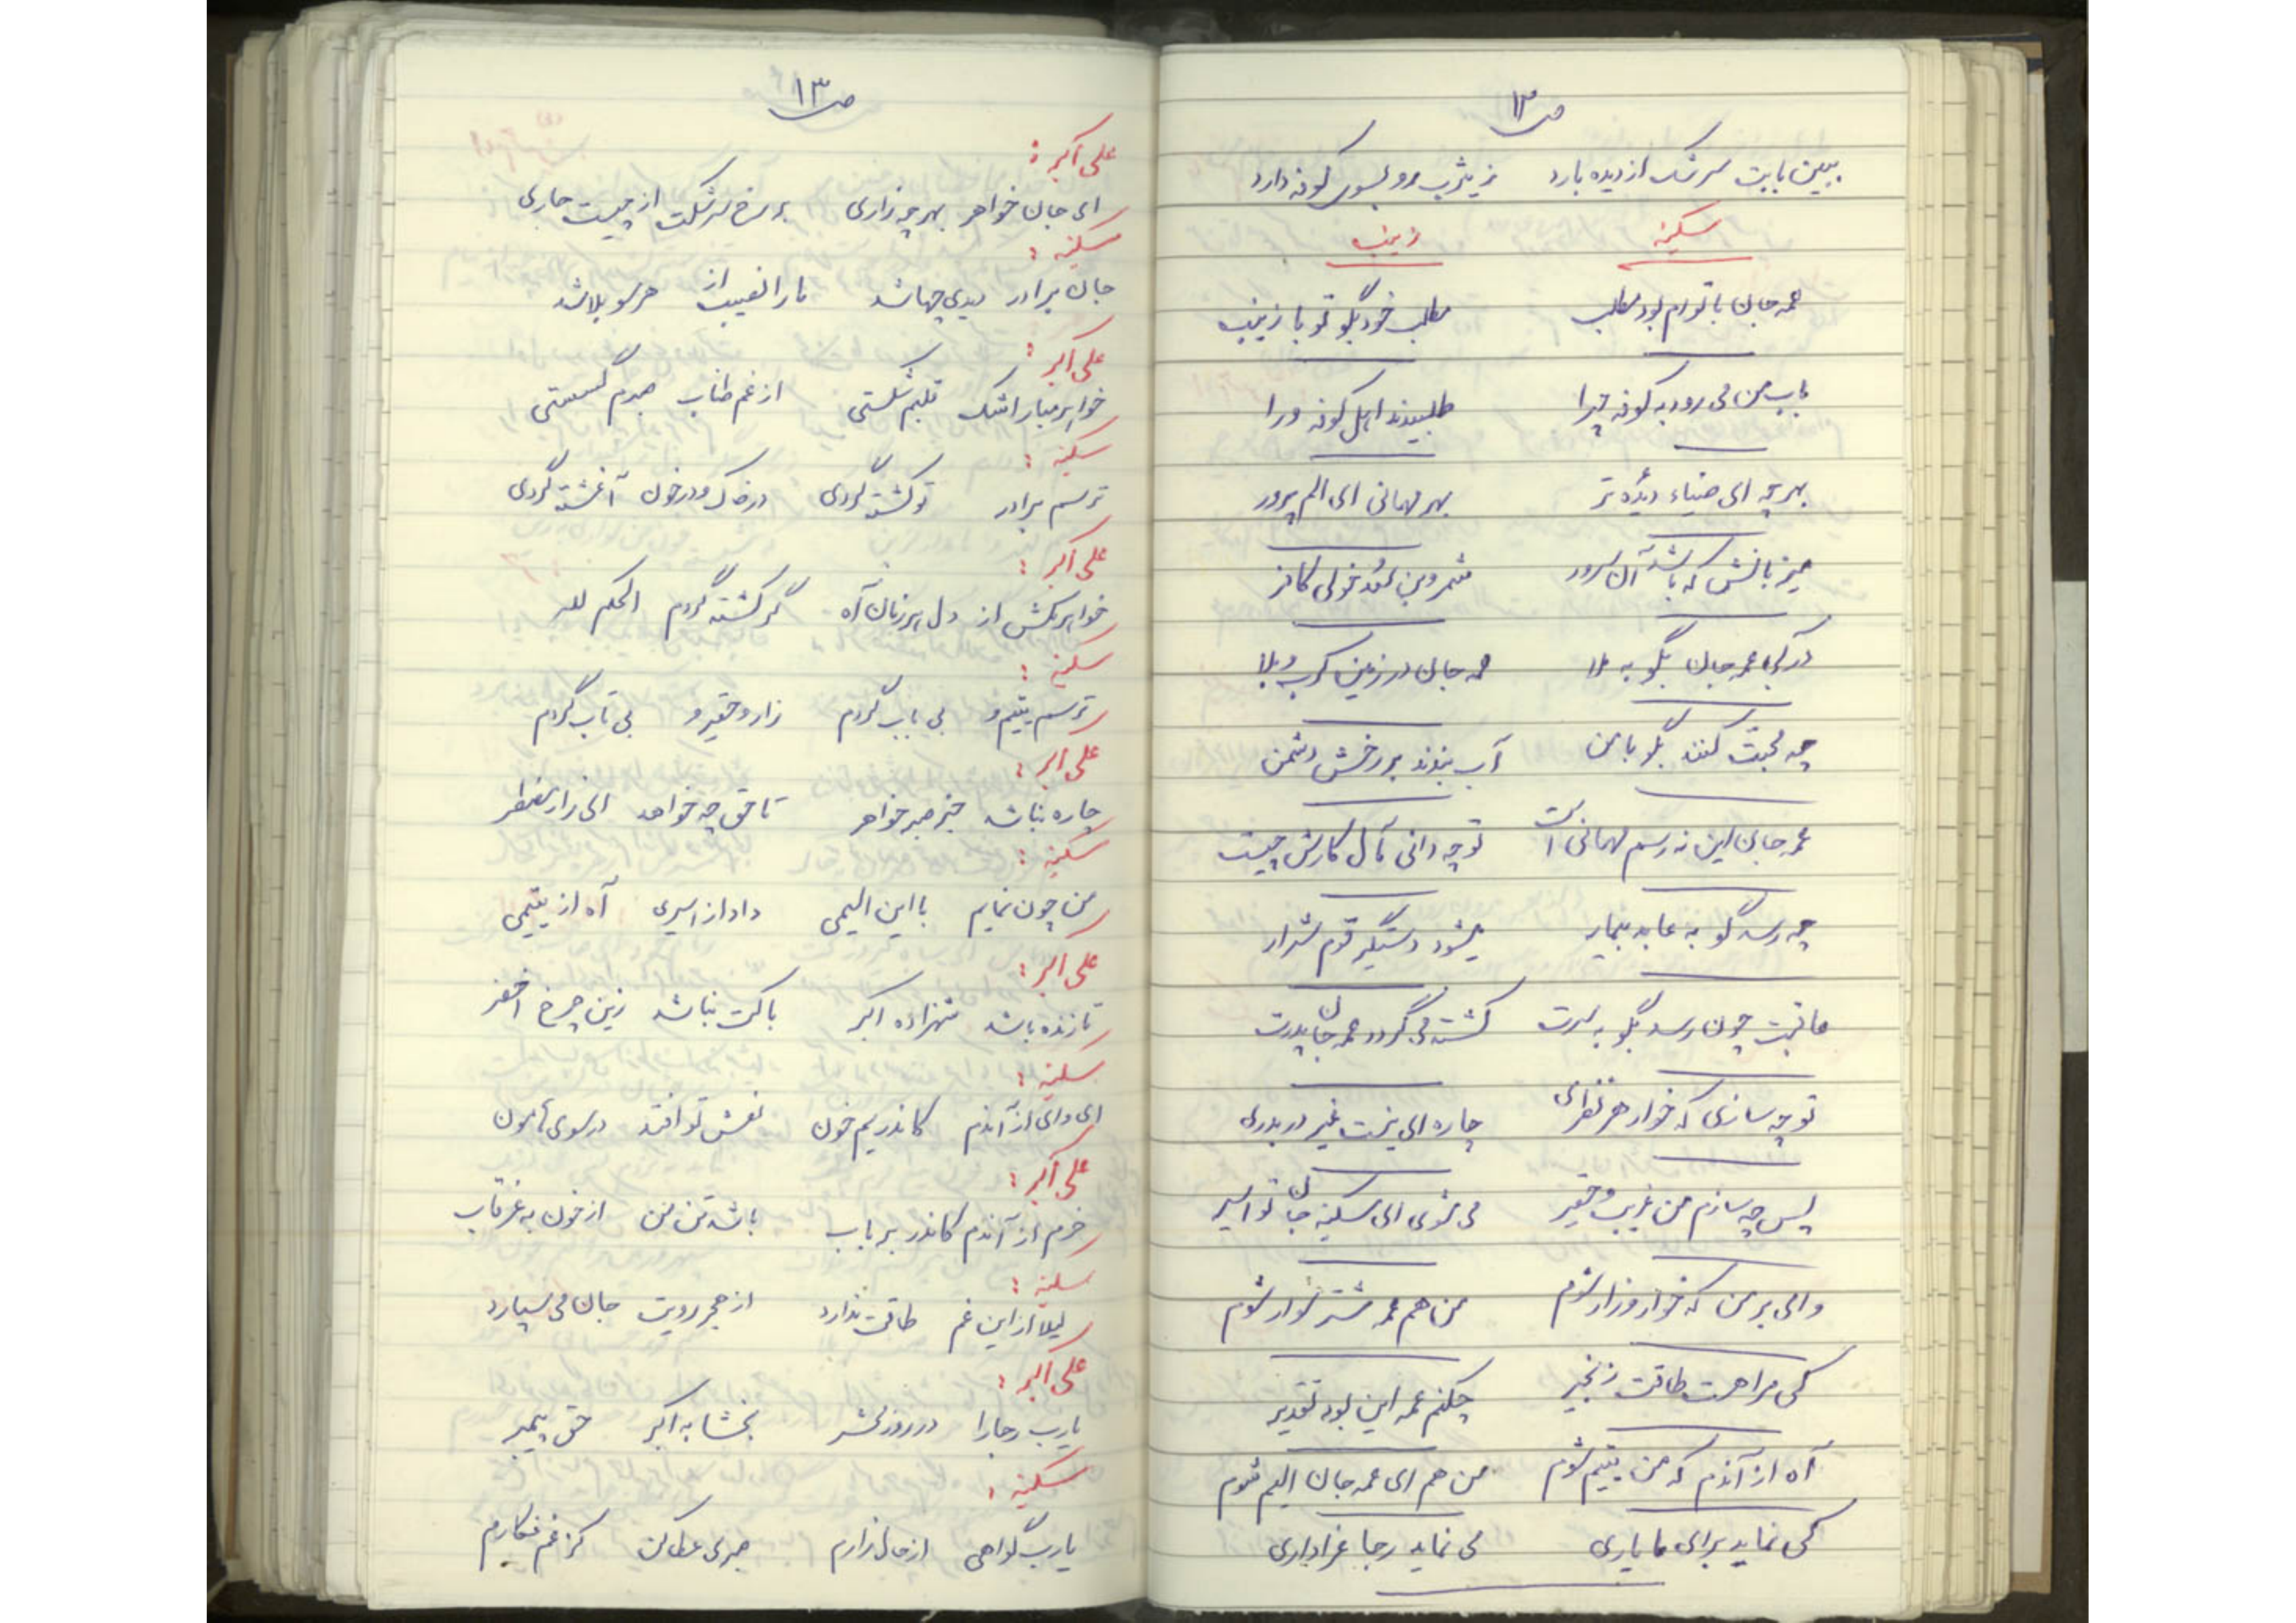 ص ۱۲
ببین بابت سرشک از دیده بارد   ز یثرب رو بسوی کوفه دارد
سکینه   زینب
عمه جان با توام بود مطلب   مطلب خود بگو تو با زینب
باب من می رود به کوفه چرا   طلبیدند اهل کوفه ورا
بهر چه ای ضیاء دیده تر   بهر مهمانی ای الم پرور
میزبانش که باشد آن سرور   شمر و بن سعد خولی کافر
در کجا عمه جان بگو به ملا   عمه جان در زمین کرب و بلا
چه محبت کنند بگو با من   آب بندند بر رخش دشمن
عمه جان این نه رسم مهمانی است   تو چه دانی مآل کارش چیست
چه رسد گو به عابد بیمار   میشود دستگیر قوم شرار
عاقبت چون رسد بگو به سرت   کشته می گردد عمه جان پدرت
تو چه سازی که خوار هر نظرای   چاره ای نیست غیر دربدری
پس چه سازم من غریب و حقیر   می شوی ای سکینه جان تو اسیر
وای بر من که خوار و زار شوم   من هم عمه شتر سوار شوم
کی مرا هست طاقت زنجیر   چکنم عمه این بود تقدیر
آه از آندم که من یتیم شوم   من هم ای عمه جان الیم شوم
کی نماید برای ما یاری   می نماید رجا عزاداری
ص ۱۳
علی اکبر :
ای جان خواهر   بهر چه زاری   بر رخ سرشکت   از چیست جاری
سکینه :
جان برادر   دیدی چها شد   ما را نصیب از   هر سو بلا شد
علی اکبر :
خواهر مبار اشک   قلبم شکستی   از غم طناب   صبرم گسستی
سکینه :
ترسم برادر   تو کشته گردی   در خاک و در خون   آغشته گردی
علی اکبر :
خواهر مکش از   دل هر زمان آه   گر کشته گردم   الحکم لله
سکینه :
ترسم یتیم و   بی باب گردم   زار و حقیر و   بی تاب گردم
علی اکبر :
چاره نباشد   جز صبر خواهر   تا حق چه خواهد   ای زار مضطر
سکینه :
من چون نمایم   با این الیمی   داد از اسیری   آه از یتیمی
علی اکبر :
تا زنده باشد   شهزاده اکبر   باکت نباشد   زین چرخ اخضر
سکینه :
ای وای از آندم   کاندر یم خون   نعش تو افتد   در سوی هامون
علی اکبر :
خرم از آندم   کاندر بر باب   باشد تن من   از خون به غرقاب
سکینه :
لیلا از این غم   طاقت ندارد   از هجر رویت   جان می سپارد
علی اکبر :
یارب رجا را   در روز محشر   بخشا به اکبر   حق پیمبر
سکینه :
یارب گواهی   از حال زارم   صبری عطا کن   کز غم فکارم